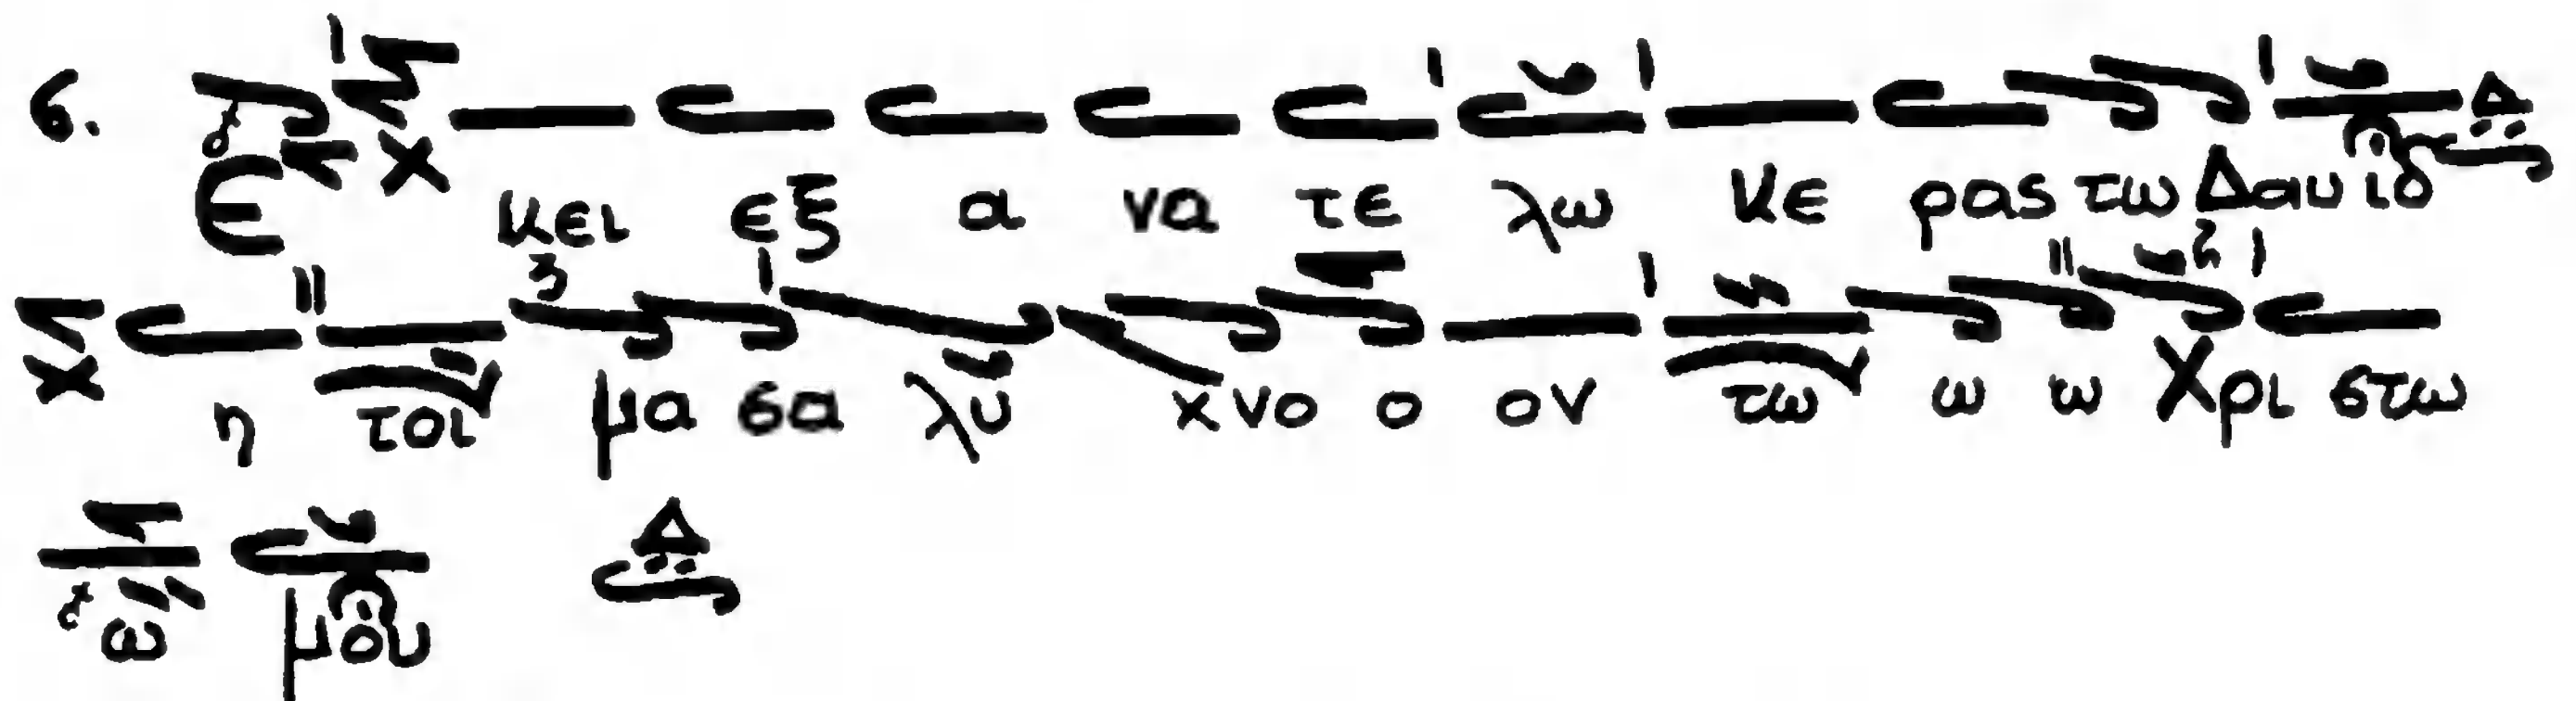 6. Ε κει εξ α να τε λω κε ρας τω Δαυιδ Δ
η τοι μα σα λυ χνο ο ον τω ω ω Χρι στω
ω μου Δ